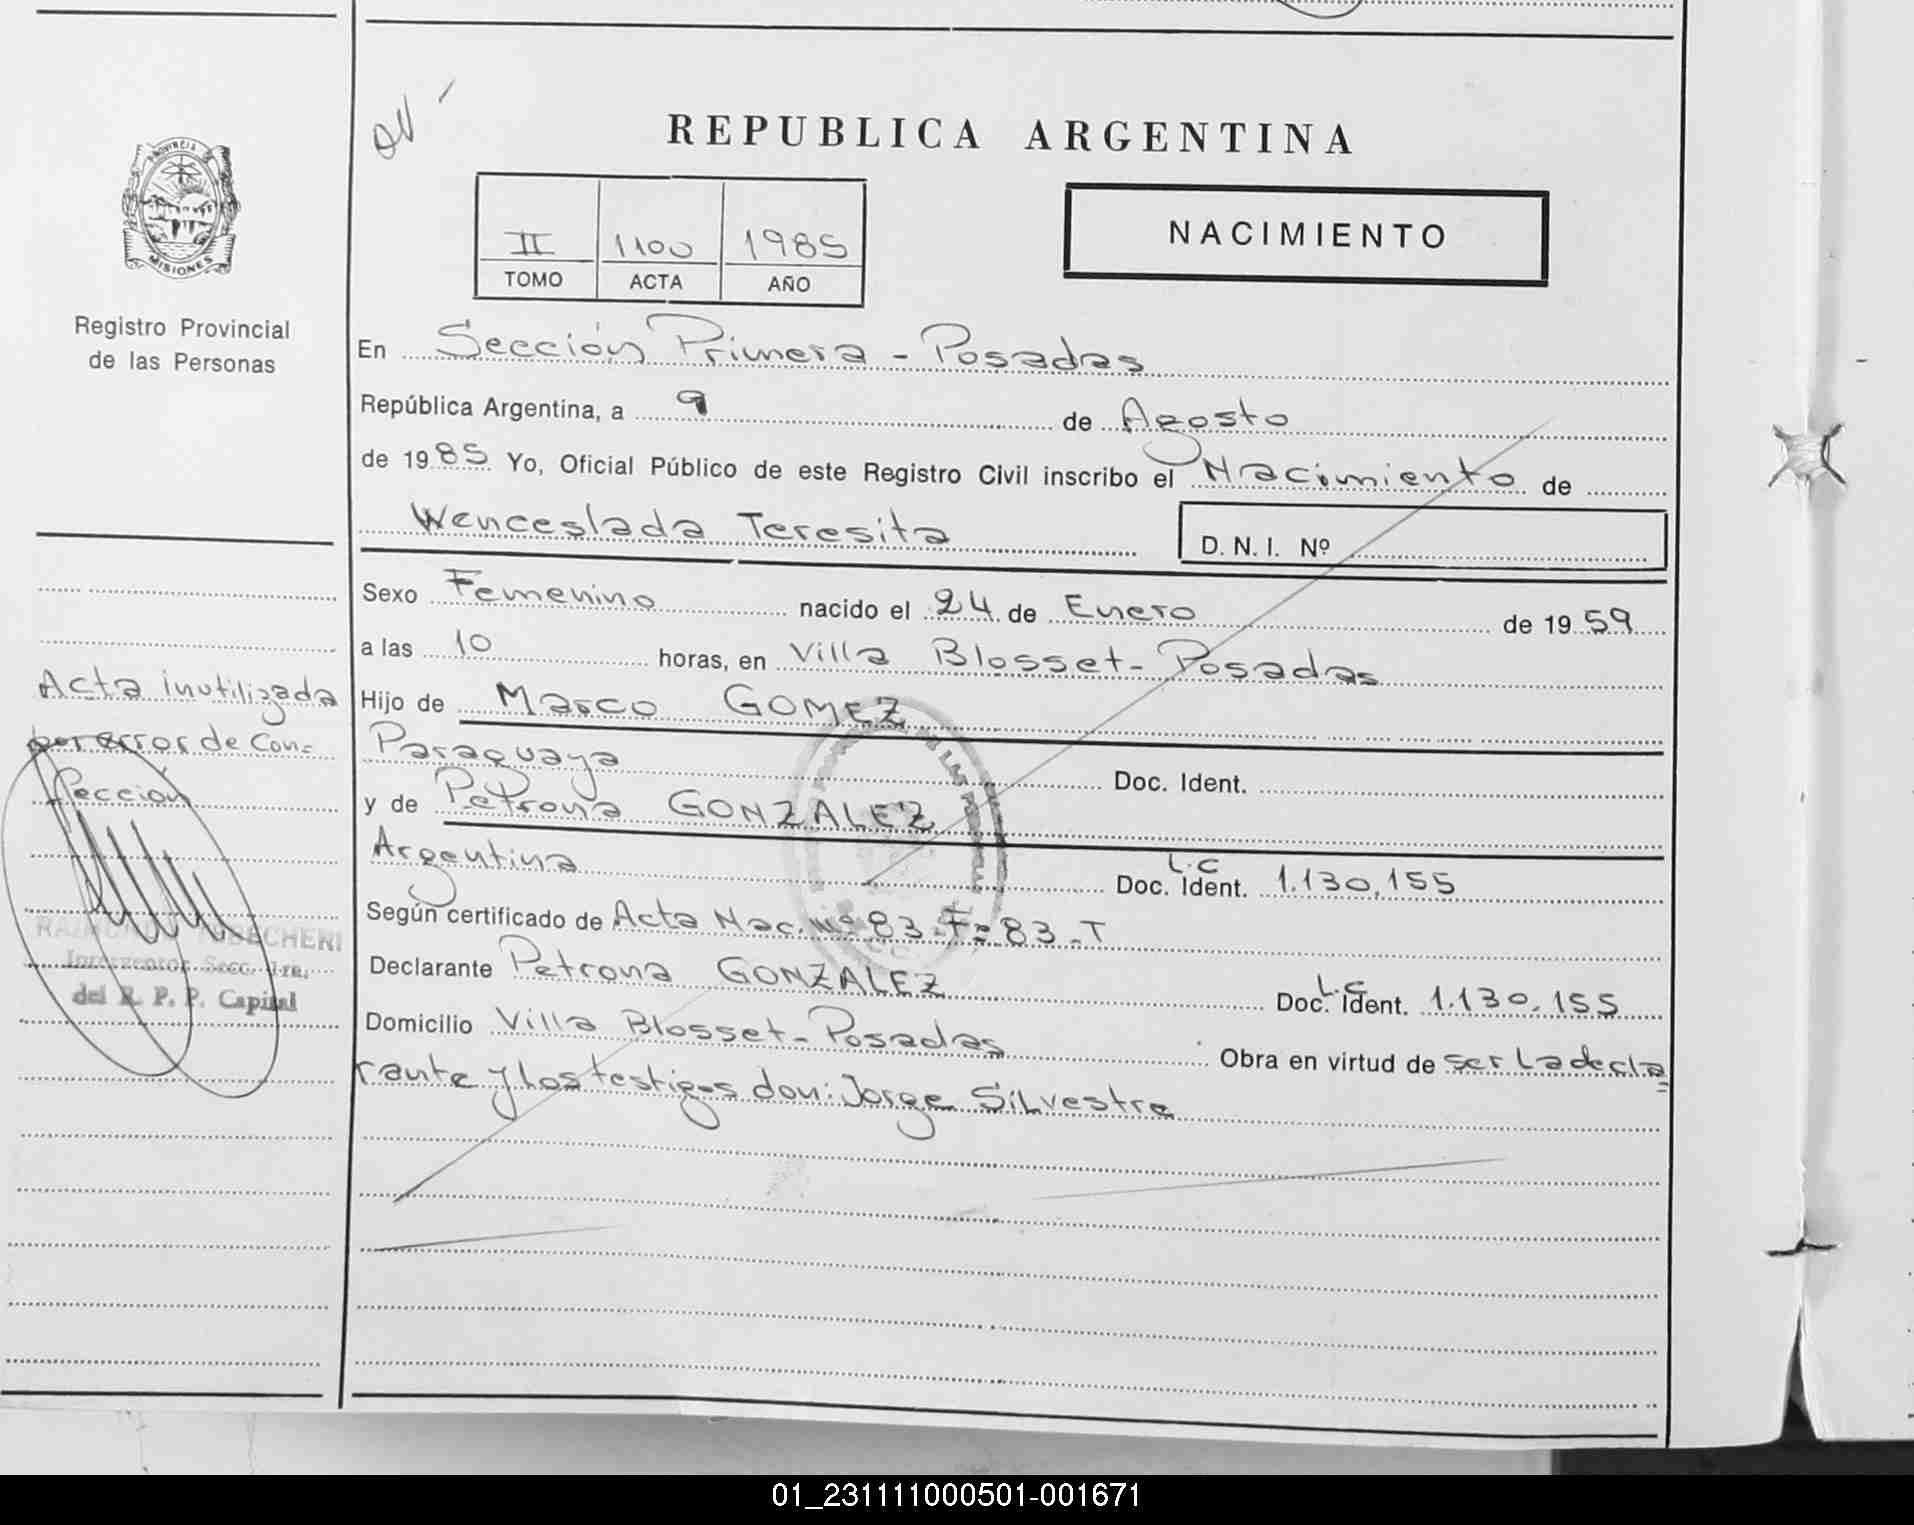 REPUBLICA ARGENTINA
PROVINCIA DE
MISIONES
Registro Provincial
de las Personas
II 1100 1985
TOMO ACTA AÑO
NACIMIENTO
En Sección Primera - Posadas
República Argentina, a 9 de Agosto
de 1985 Yo, Oficial Público de este Registro Civil inscribo el Nacimiento de
Wenceslada Teresita D. N. I. Nº
Sexo Femenino nacido el 24 de Enero de 1959
a las 10 horas, en Villa Blosset - Posadas
Hijo de Marco GOMEZ
Paraguaya Doc. Ident.
y de Petrona GONZALEZ
Argentina Doc. Ident. L.C 1.130,155
Según certificado de Acta Nac. Nº 83 - Fº 83 - T
Declarante Petrona GONZALEZ Doc. Ident. L.C 1.130.155
Domicilio Villa Blosset - Posadas Obra en virtud de ser la decla=
rante y los testigos don: Jorge Silvestre
Acta inutilizada
por error de Con=
fección
Secc. 1ra.
del R. P. P. Capital
01_231111000501-001671